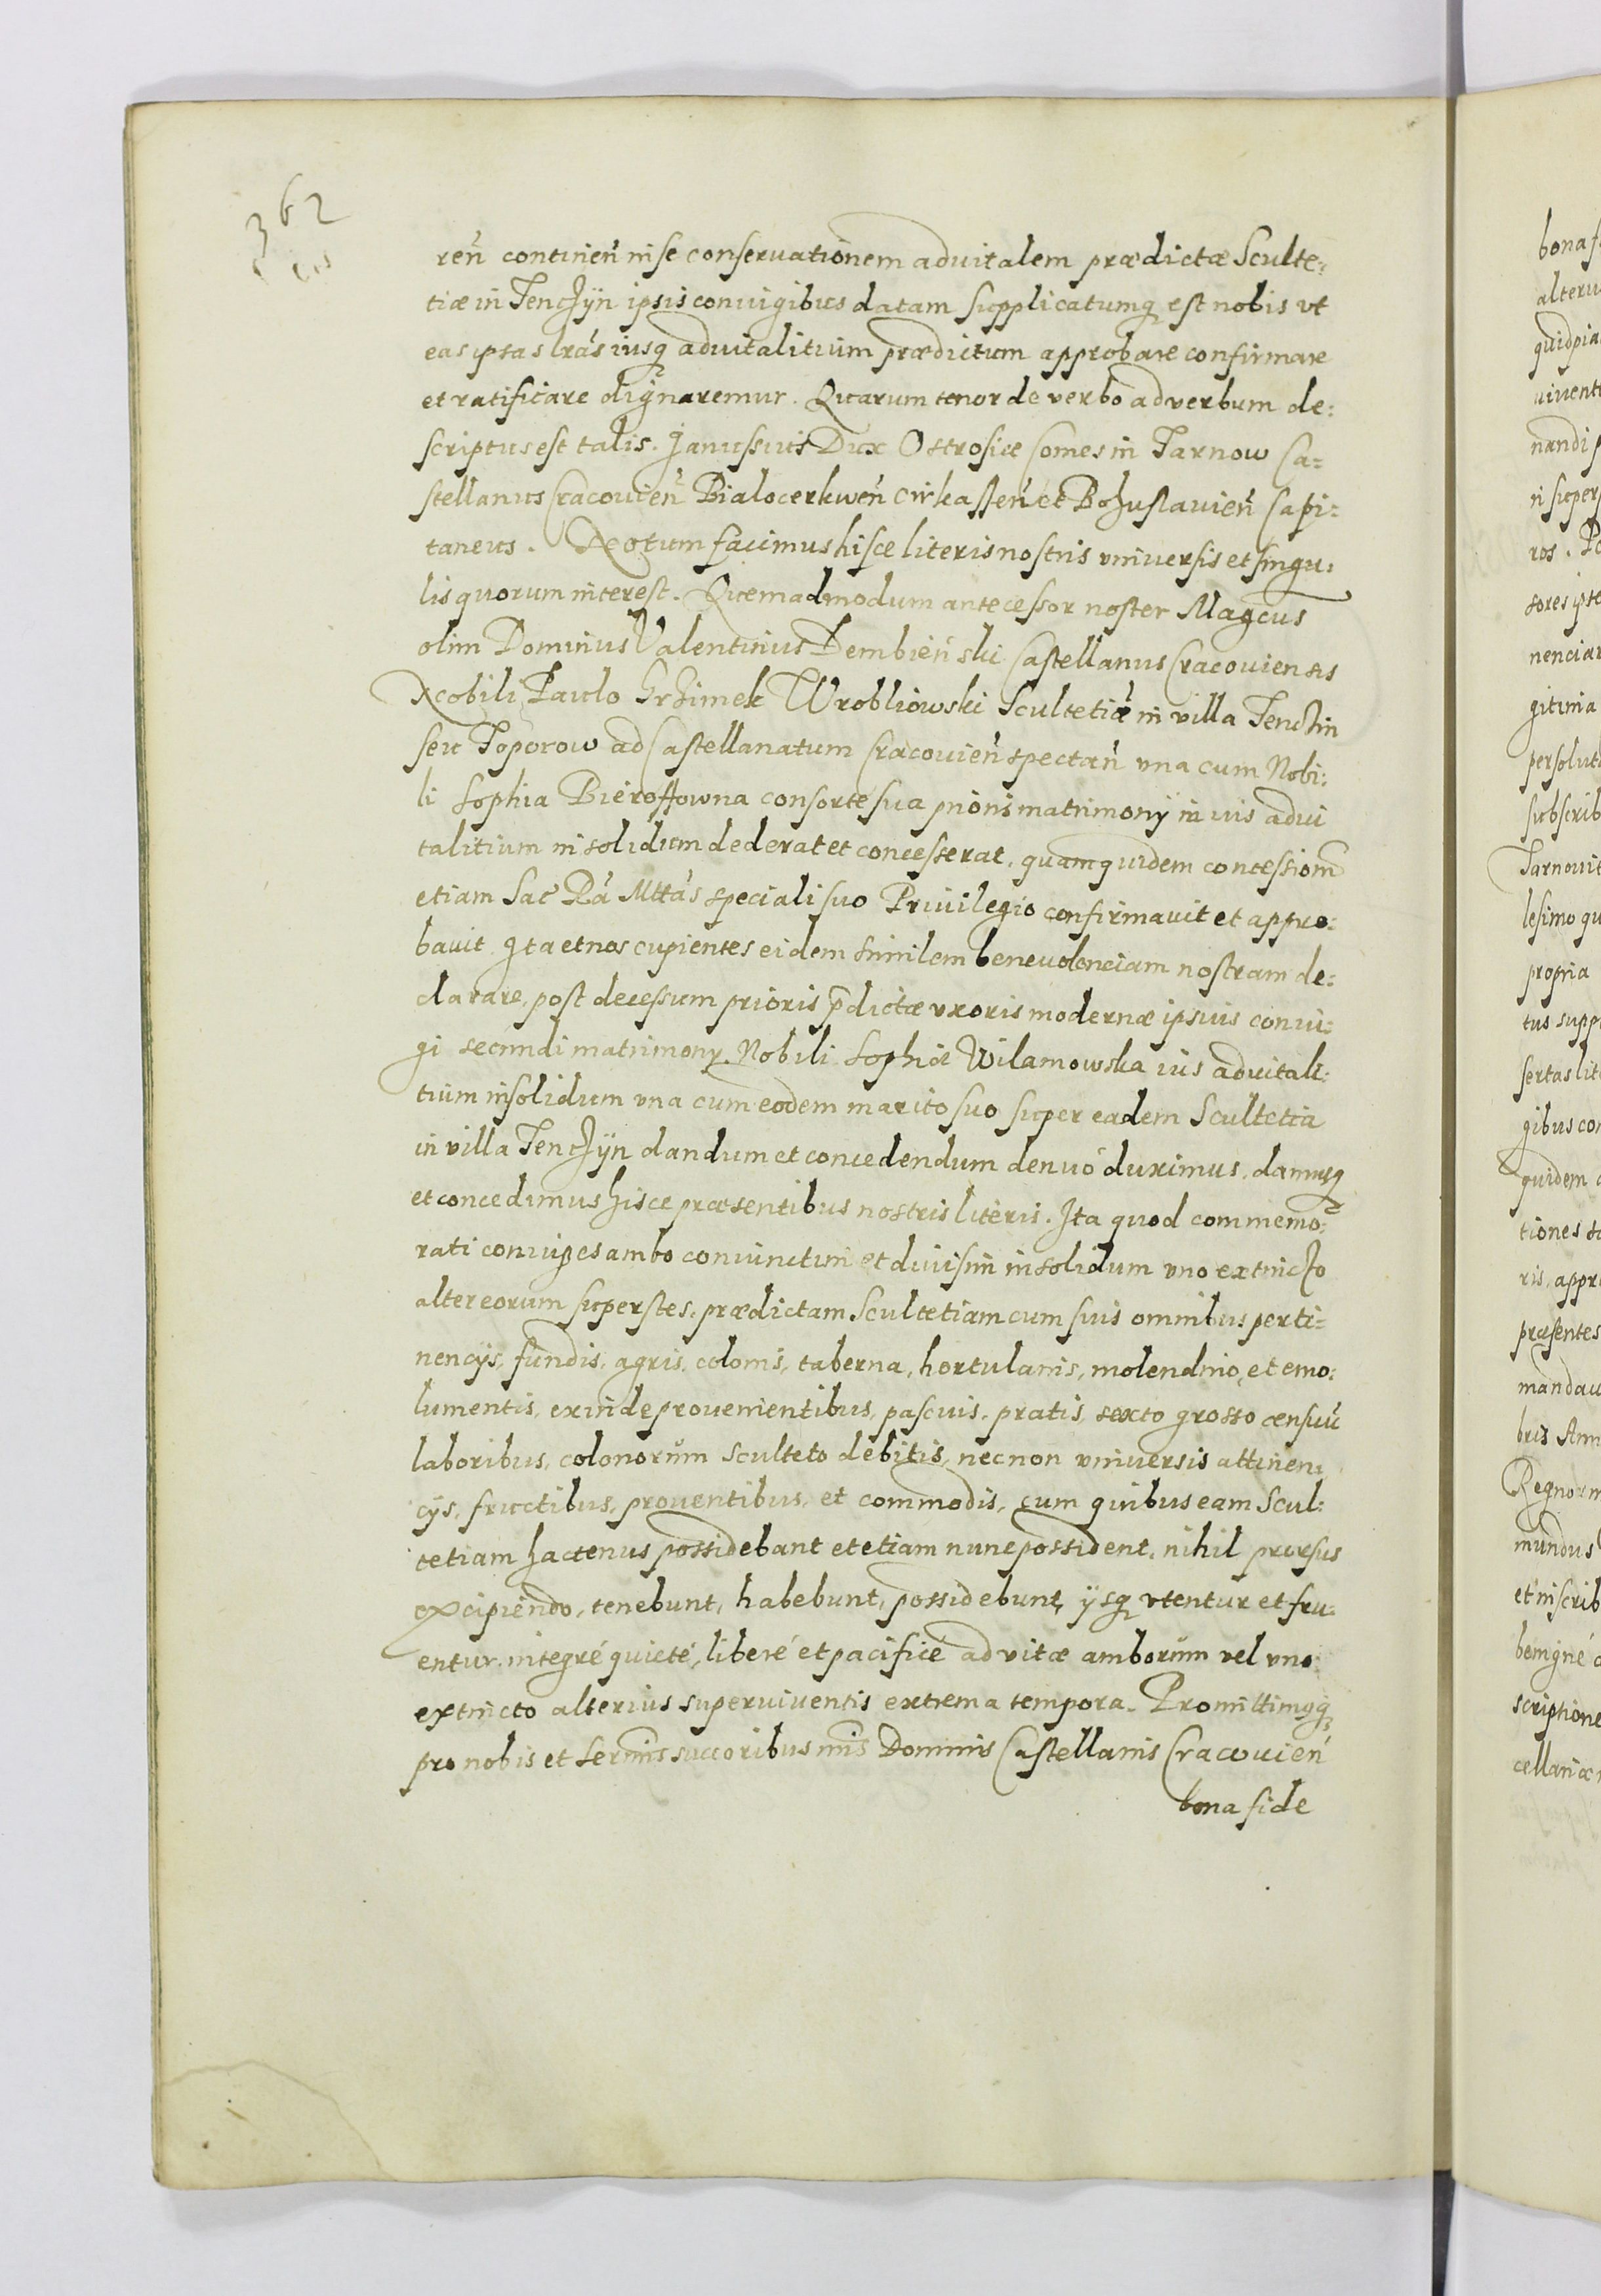 362
reñ contineñ in se conseruationem aduitalem prædictæ Sculte:
tiæ in Tenczÿn ipsis coniugibus datam supplicatumq est nobis vt
eas ipsas lrás iusq aduitalitium prædictum approbare confirmare
et ratificare dignaremur. Quarum tenor de verbo ad verbum de:
scriptus est talis. Janussius Dux Ostrosiæ Comes in Tarnow Ca=
stellanus Cracouieñ Bialocerkweñ Cirkasseñ et Bohuslauieñ Capi=
taneus. Notum facimus hisce literis nostris vniuersis et singu:
lis quorum interest. Quemadmodum antecessor noster Magcus
olim Dominus Valentinus Dembieński Castellanus Cracouiensis
Nobili Paulo Grzimek Wrobliowski Scultetiæ in villa Tenczin
seu Toporow ad Castellanatum Cracouieñ spectañ vna cum Nobi:
li Sophia Bieroffowna consorte sua prioris matrimonÿ in ius adui
talitium in solidum dederat et concesserat. quam quidem concessionẽ
etiam Sac Rá Mttás speciali suo Priuilegio confirmauit et appro:
bauit. Ita et nos cupientes eidem similem beneuolenciam nostram de:
clarare, post decessum prioris p̃dictæ vxoris modernæ ipsius coniu:
gi secundi matrimonÿ. Nobili Sophiæ Wilamowska ius aduitali:
tium insolidum vna cum eodem marito suo super eadem Scultetia
in villa Tenczÿn dandum et concedendum denuó duximus, damusq
et concedimus hisce præsentibus nostris literis. Ita quod commemo:
rati coniuges ambo coniunctim et diuisim insolidum vno extincto
alter eorum superstes, prædictam Scultetiam cum suis omnibus perti=
nencÿs, fundis, agris, colonis, taberna, hortulanis, molendino, et emo:
lumentis, exinde prouenientibus, pascuis, pratis, sexto grosso censuũ
laboribus, colonorũm Sculteto debitis, necnon vniuersis attinen:
cÿs, fructibus, prouentibus, et commodis, cum quibus eam Scul:
tetiam hactenus possidebant et etiam nunc possident, nihil prorsus
excipiendo, tenebunt, habebunt, possidebunt, ÿsq vtentur et fru:
entur. integré quieté, liberé et pacificé ad vitæ amborũm vel vno
extincto alterius superuiuentis extrema tempora. Promittimusq
pro nobis et Sermis succoribus nris Dominis Castellanis Cracouień
bona fide